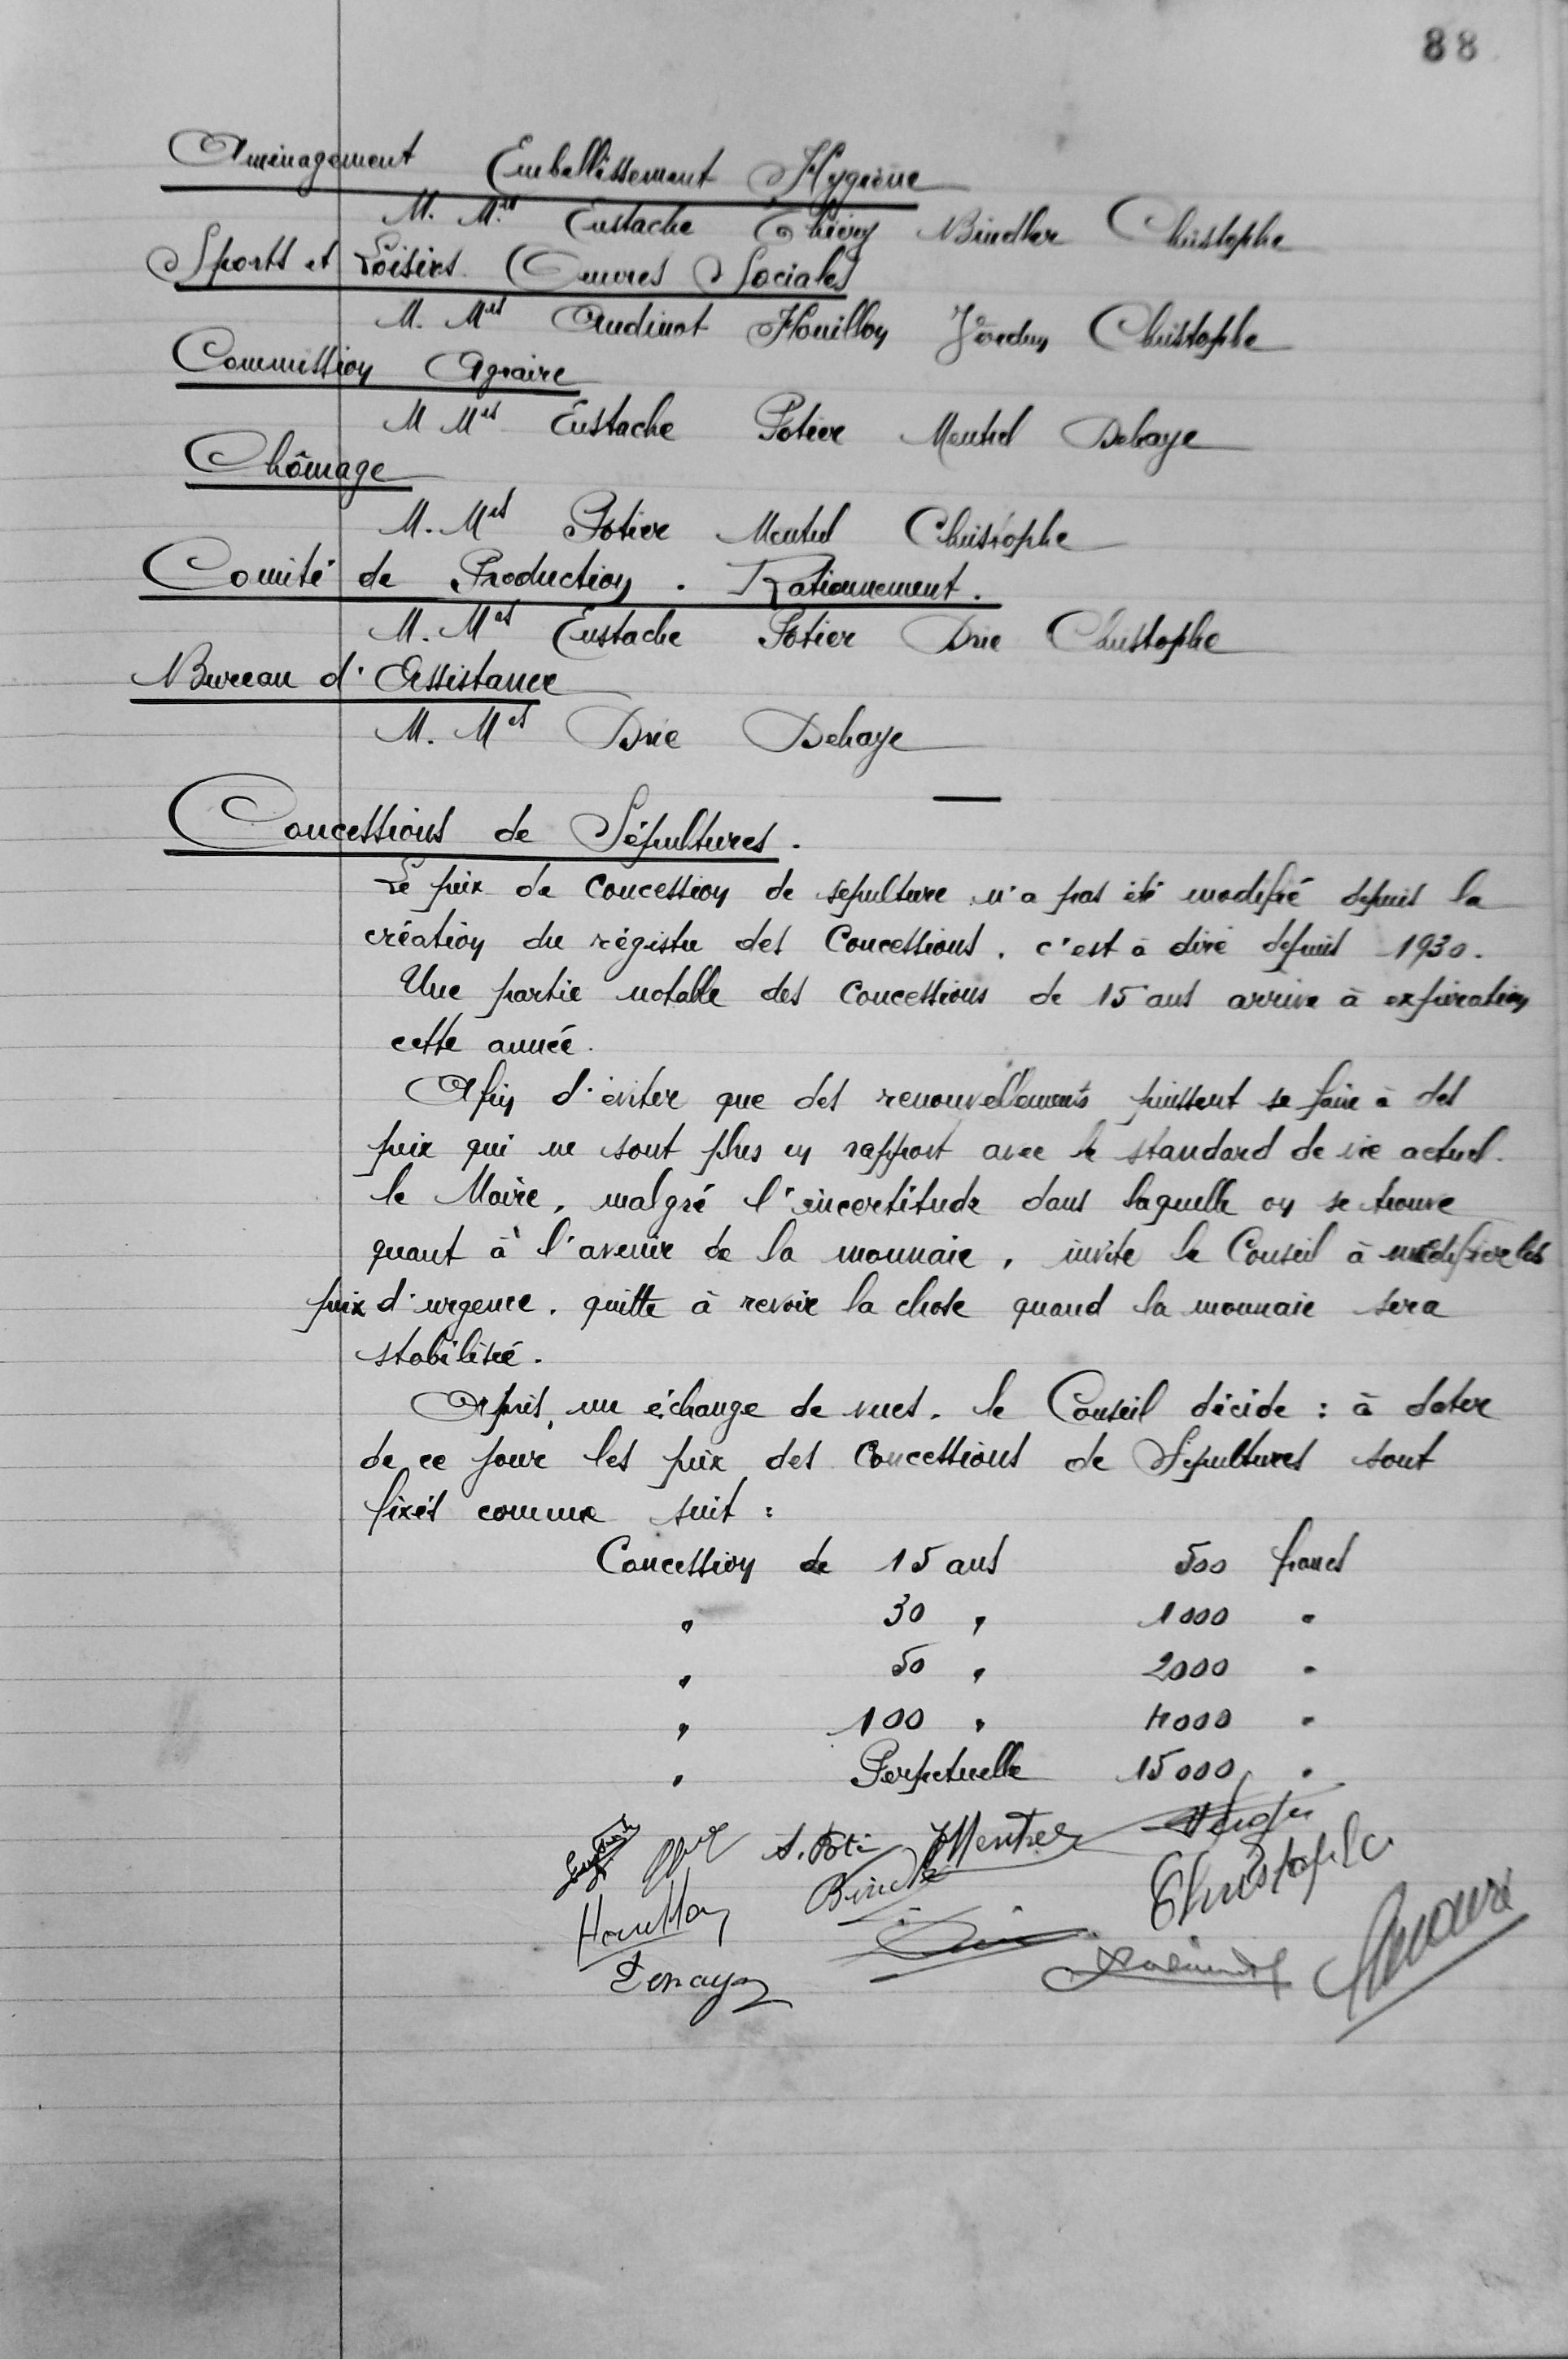 88
Aménagement Embellissement Hygiène
M. Mrs Eustache Thiéry Bindler Christophe
Sports et Loisirs. Oeuvres Sociales
M. Mrs Audinot Houillon Jordan Christophe
Commission Agraire
M Mrs Eustache Potier Mentrel Dehaye
Chômage
M. Mrs Potier Mentrel Christophe
Comité de Production. Rationnement.
M. Mrs Eustache Potier Drie Christophe
Bureau d'Assistance
M. Mrs Drie Dehaye
Concessions de Sépultures.
Le prix de concession de sépulture n'a pas été modifié depuis la
création du régistre des Concessions, c'est à dire depuis 1930.
Une partie notable des concessions de 15 ans arrive à expiration
cette année.
Afin d'éviter que des renouvellements puissent se faire à des
prix qui ne sont plus en rapport avec le standard de vie actuel.
le Maire, malgré l'incertitude dans laquelle on se trouve
quant à l'avenir de la monnaie, invite le Conseil à modifier les
prix d'urgence, quitte à revoir la chose quand la monnaie sera
stabilisée.
Après, un échange de vues, le Conseil décide : à dater
de ce jour les prix des Concessions de Sépultures sont
fixés comme suit :
Concession de 15 ans 500 francs
" 30 " 1000 "
" 50 " 2000 "
" 100 " 4000 "
" Perpétuelle 15000 "
A. Poti Mentrel
Houillon Bindler Christophe
Dehaye